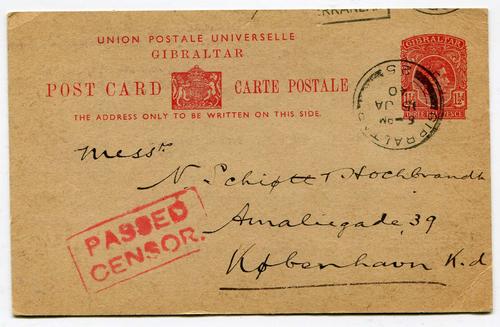 UNION POSTALE UNIVERSELLE
GIBRALTAR
POST CARD CARTE POSTALE
THE ADDRESS ONLY TO BE WRITTEN ON THIS SIDE.
GIBRALTAR
1½ 1½
THREE HALFPENCE
GIBRALTAR
6-PM
15 JA
40
Messrs
N. Schiøtt & Hochbrandt
Amaliegade, 39
København K.d
PASSED
CENSOR.